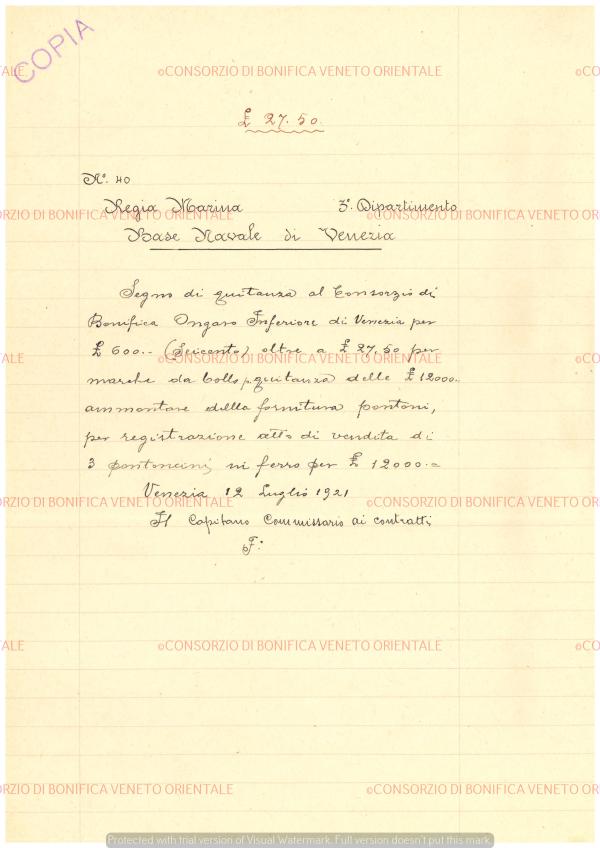 COPIA
©CONSORZIO DI BONIFICA VENETO ORIENTALE
£ 27.50
N.° 40
Regia Marina 3° Dipartimento
Base Navale di Venezia
Segno di quitanza al Consorzio di
Bonifica Ongaro Inferiore di Venezia per
£ 600.- (Seicento) oltre a £ 27,50 per
marche da bollo p. quitanza delle £ 12000.-
ammontare della fornitura pontoni,
per registrazione atto di vendita di
3 pontoncini in ferro per £ 12000.=
Venezia 12 Luglio 1921
Il Capitano Commissario ai contratti
F:
©CONSORZIO DI BONIFICA VENETO ORIENTALE
Protected with trial version of Visual Watermark. Full version doesn't put this mark.